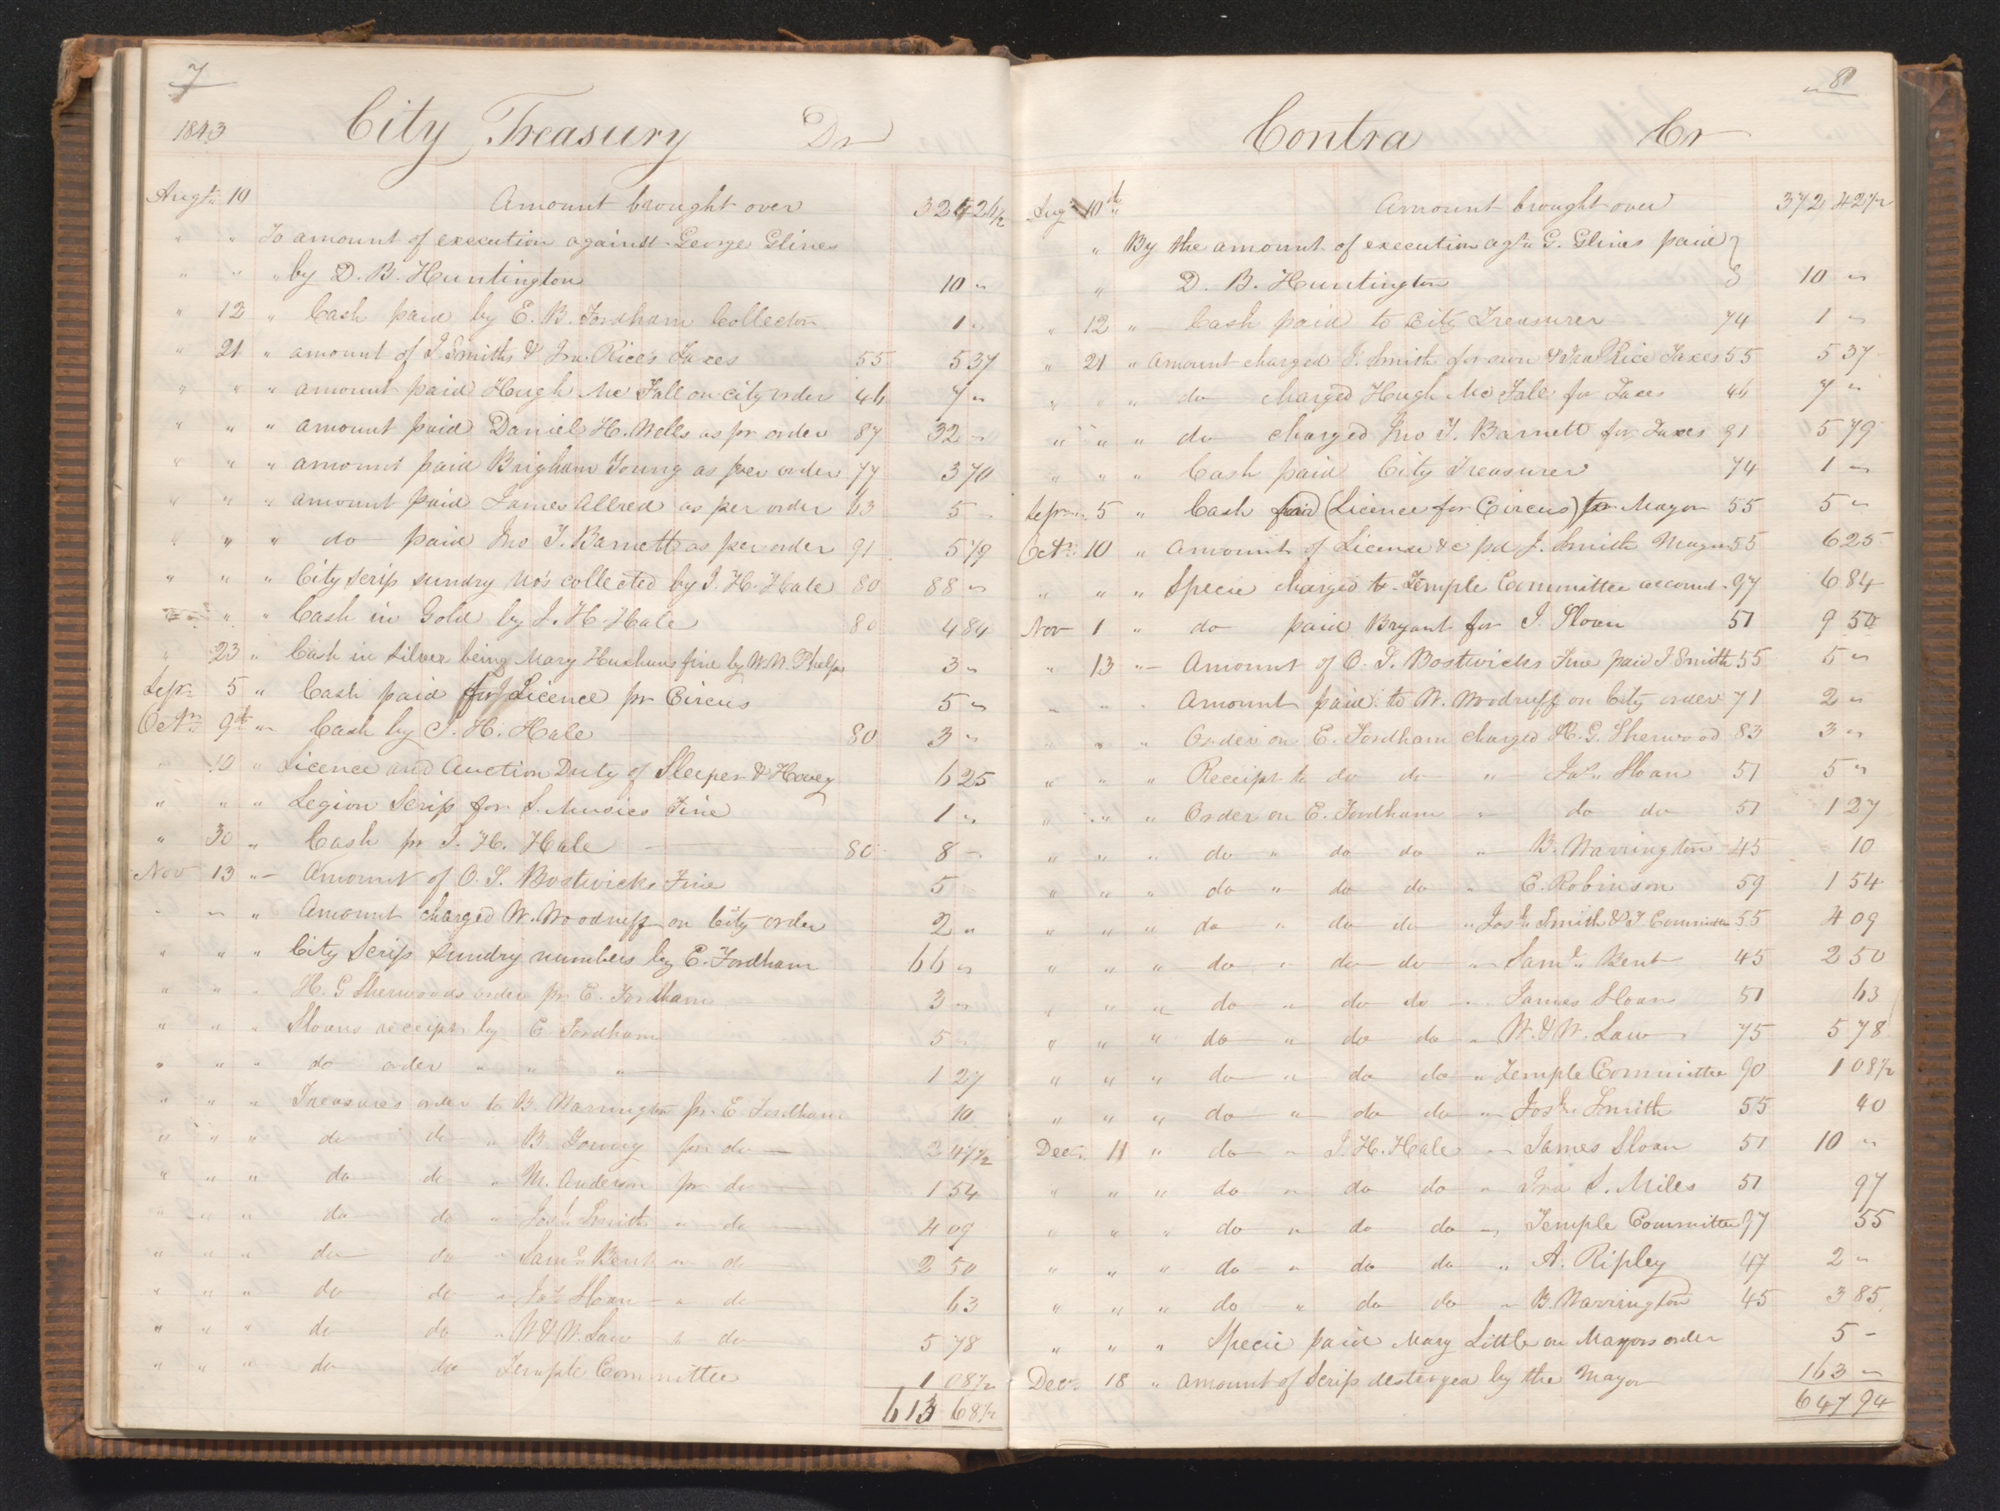 7
1843 City Treasury Dr
Augt 10 Amount brought over 324 26½
" " To amount of execution against George Glines
" " " by D. B. Huntington 10 "
" 12 " Cash paid by E. B. Fordham Collector 1 "
" 21 " amount of J Smiths & Ira Rices Taxes 55 5 37
" " " amount paid Hugh Mc Fall on city order 46 7 "
" " " amount paid Daniel H. Wells as pr order 87 32 "
" " " amount paid Brigham Young as per order 77 3 70
" " " amount paid James Allred as per order 63 5 "
" " " do paid Jno T. Barnett as per order 91 5 79
" " " City scrip sundry No's collected by J. H. Hale 80 88 "
" " Cash in Gold by J. H. Hale 80 4 84
" 23 " Cash in silver being Mary fine by W. W. Phelps 3 "
Sepr 5 " Cash paid for Licence pr Circus 5 "
Octr 9th " Cash by J. H. Hale 80 3 "
" 10 " Licence and Auction Duty of Sleeper & Hovey 6 25
" " " Legion Scrip for S. Musics Fine 1 "
" 30 " Cash pr J. H. Hale 80 8 "
Nov 13 " Amount of O. F. Bostwicks Fine 5
" " " Amount charged W. Woodruff on City order 2 "
" " " City Scrip sundry numbers by E. Fordham 66 "
" " " H. G Sherwoods order pr E. Fordham 3 "
" " " Sloans receipt by E Fordham 5 "
" " " do order " " " 1 27
" " " Treasurers order to B. Warrington pr E Fordham 10
" " " do do " B. Young pr do 3 47½
" " " do do " M. Anderson pr do 1 54
" " " do do " Josh Smith " do 4 09
" " " do do " Saml Bent " do 2 50
" " " do do " Jas Sloan " do 63
" " " do do " W & W. Law " do 5 78
" " " do do Temple Committee 1 08½
613 68½
8
Contra Cr
Augt 10th " Amount brought over 372 42½
" By the amount of execution agst G. Glines paid
" D. B. Huntington 10 "
" 12 " Cash paid to City Treasurer 74 1 "
" 21 " Amount charged J. Smith for own & Ira Rice Taxes 55 5 37
" " " do charged Hugh Mc Fall for Taxes 46 7 "
" " " do charged Jno T. Barnett for Taxes 91 5 79
" " " Cash paid City Treasurer 74 1 "
Sepr 5 " Cash paid (Licence for Circus) to Mayor 55 5 "
Octr 10 " Amount of License &c pd J. Smith Mayor 55 6 25
" " " Specie charged to Temple Committee account 97 6 84
Nov 1 " do paid Bryant for J. Sloan 51 9 50
" 13 " Amount of O. F. Bostwicks Fine paid J Smith 55 5 "
" " " Amount paid to W. Woodruff on City order 71 2 "
" " " Order on E. Fordham charged H. G. Sherwood 83 3 "
" " " Receipt to do do " Jas Sloan 51 5 "
" " " Order on E. Fordham " do do 51 1 27
" " " do " do do " B. Warrington 45 10
" " " do " do do " E. Robinson 59 1 54
" " " do " do do " Josh Smith & T Committee 55 4 09
" " " do " do do " Saml Bent 45 2 50
" " " do " do do " James Sloan 51 63
" " " do " do do " W. & W. Law 75 5 78
" " " do " do do " Temple Committee 90 1 08½
" " " do " do do " Josh Smith 55 40
Decr 11 " do " J. H. Hale " James Sloan 51 10 "
" " " do " do do " Ira S. Miles 51 97
" " " do " do do " Temple Committee 97 55
" " " do " do do " A. Ripley 47 2 "
" " " do " do do " B. Warrington 45 3 85
" " " Specie paid Mary Little on Mayors order 5 -
Decr 18 " Amount of Scrip destroyed by the Mayor 163 "
647 94